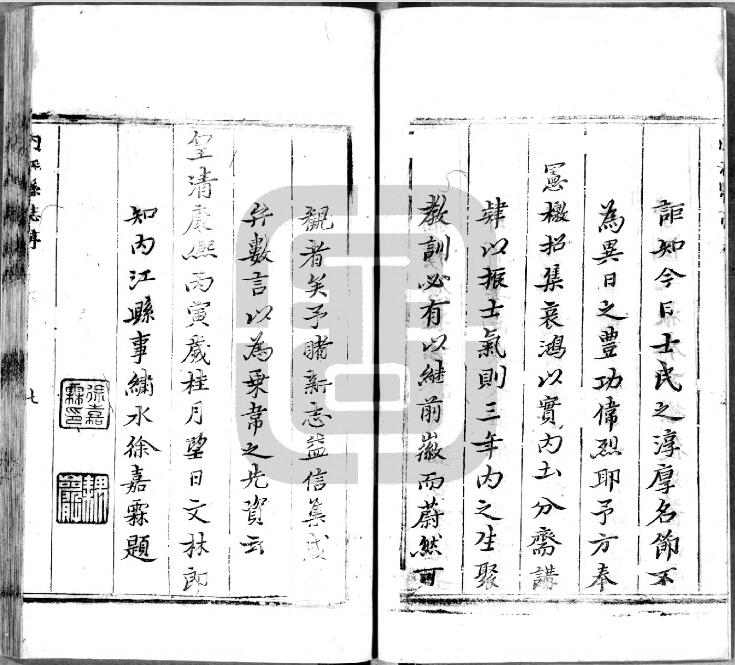 詎知今日士民之淳厚名節不
為異日之豐功偉烈耶予方奉
憲檄招集哀鴻以實內土分齋講
肄以振士氣則三年內之生聚
教訓必有以継前徽而蔚然可
觀者矣予睹新志益信篹成
弁數言以為乗韋之先資云
皇清康熙丙寅歲桂月望日文林郎
知內江縣事繡水徐嘉霖題
徐嘉霖印
內江縣志序
七